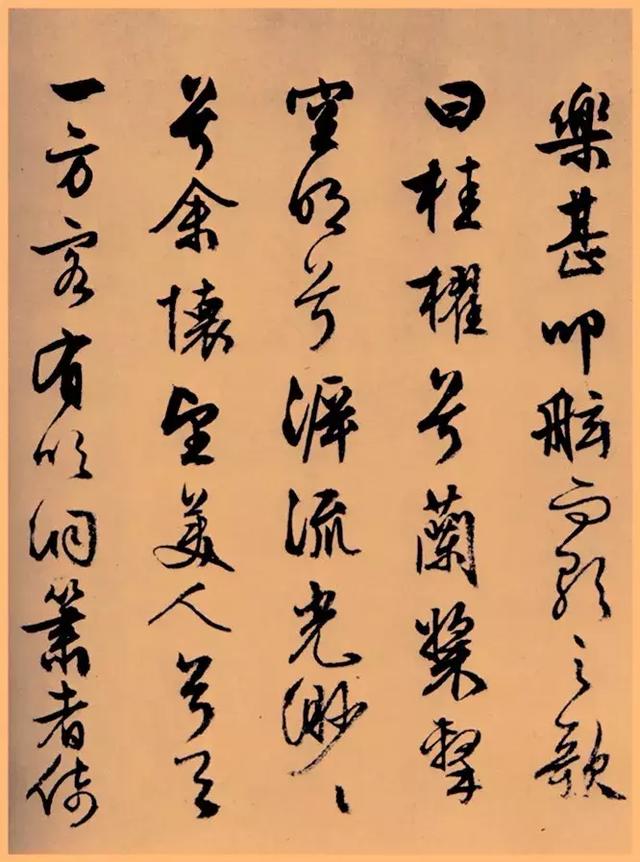 樂甚叩舷而歌之歌
曰桂櫂兮蘭槳擊
空明兮泝流光渺〻
兮余懷望美人兮天
一方客有吹洞簫者倚